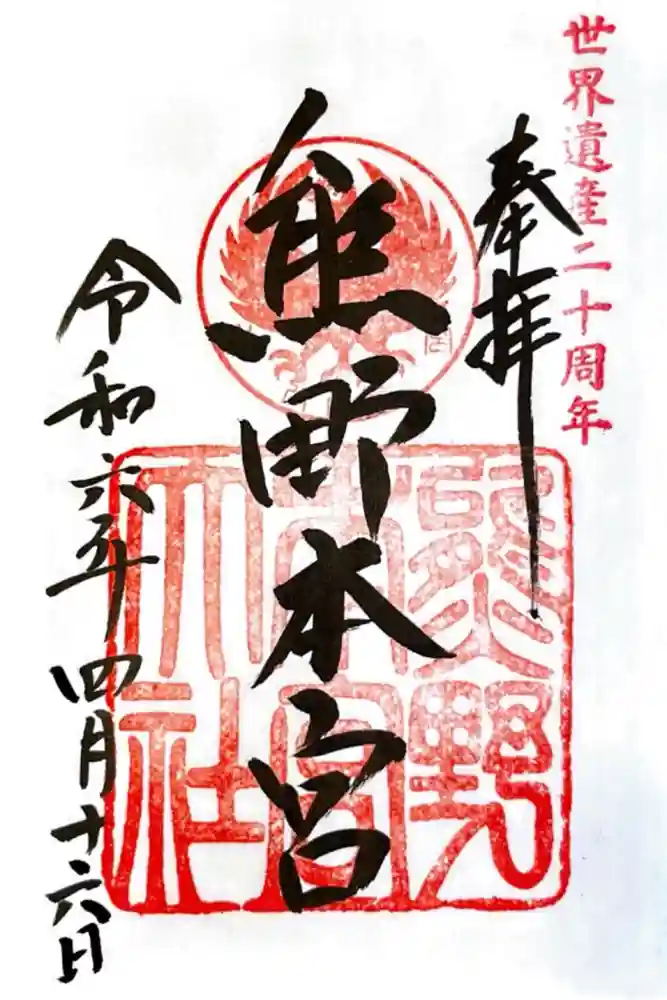 世界遺産二十周年
奉拝
熊野本宮
令和六年四月十六日
熊野
本宮
大社